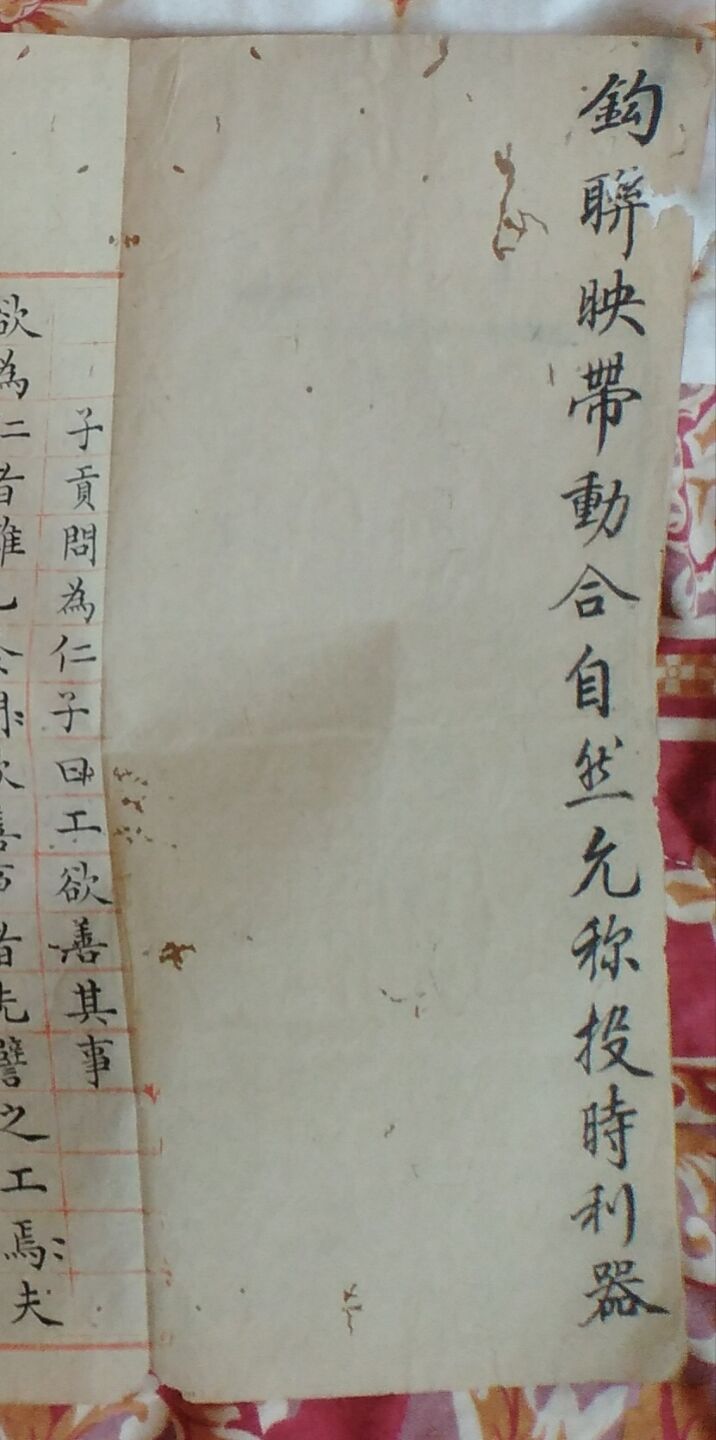 鈎聨映帶動合自然允称投時利器
子貢問為仁子曰工欲善其事
欲為仁者雖也令明欲善事者先譬之工焉夫